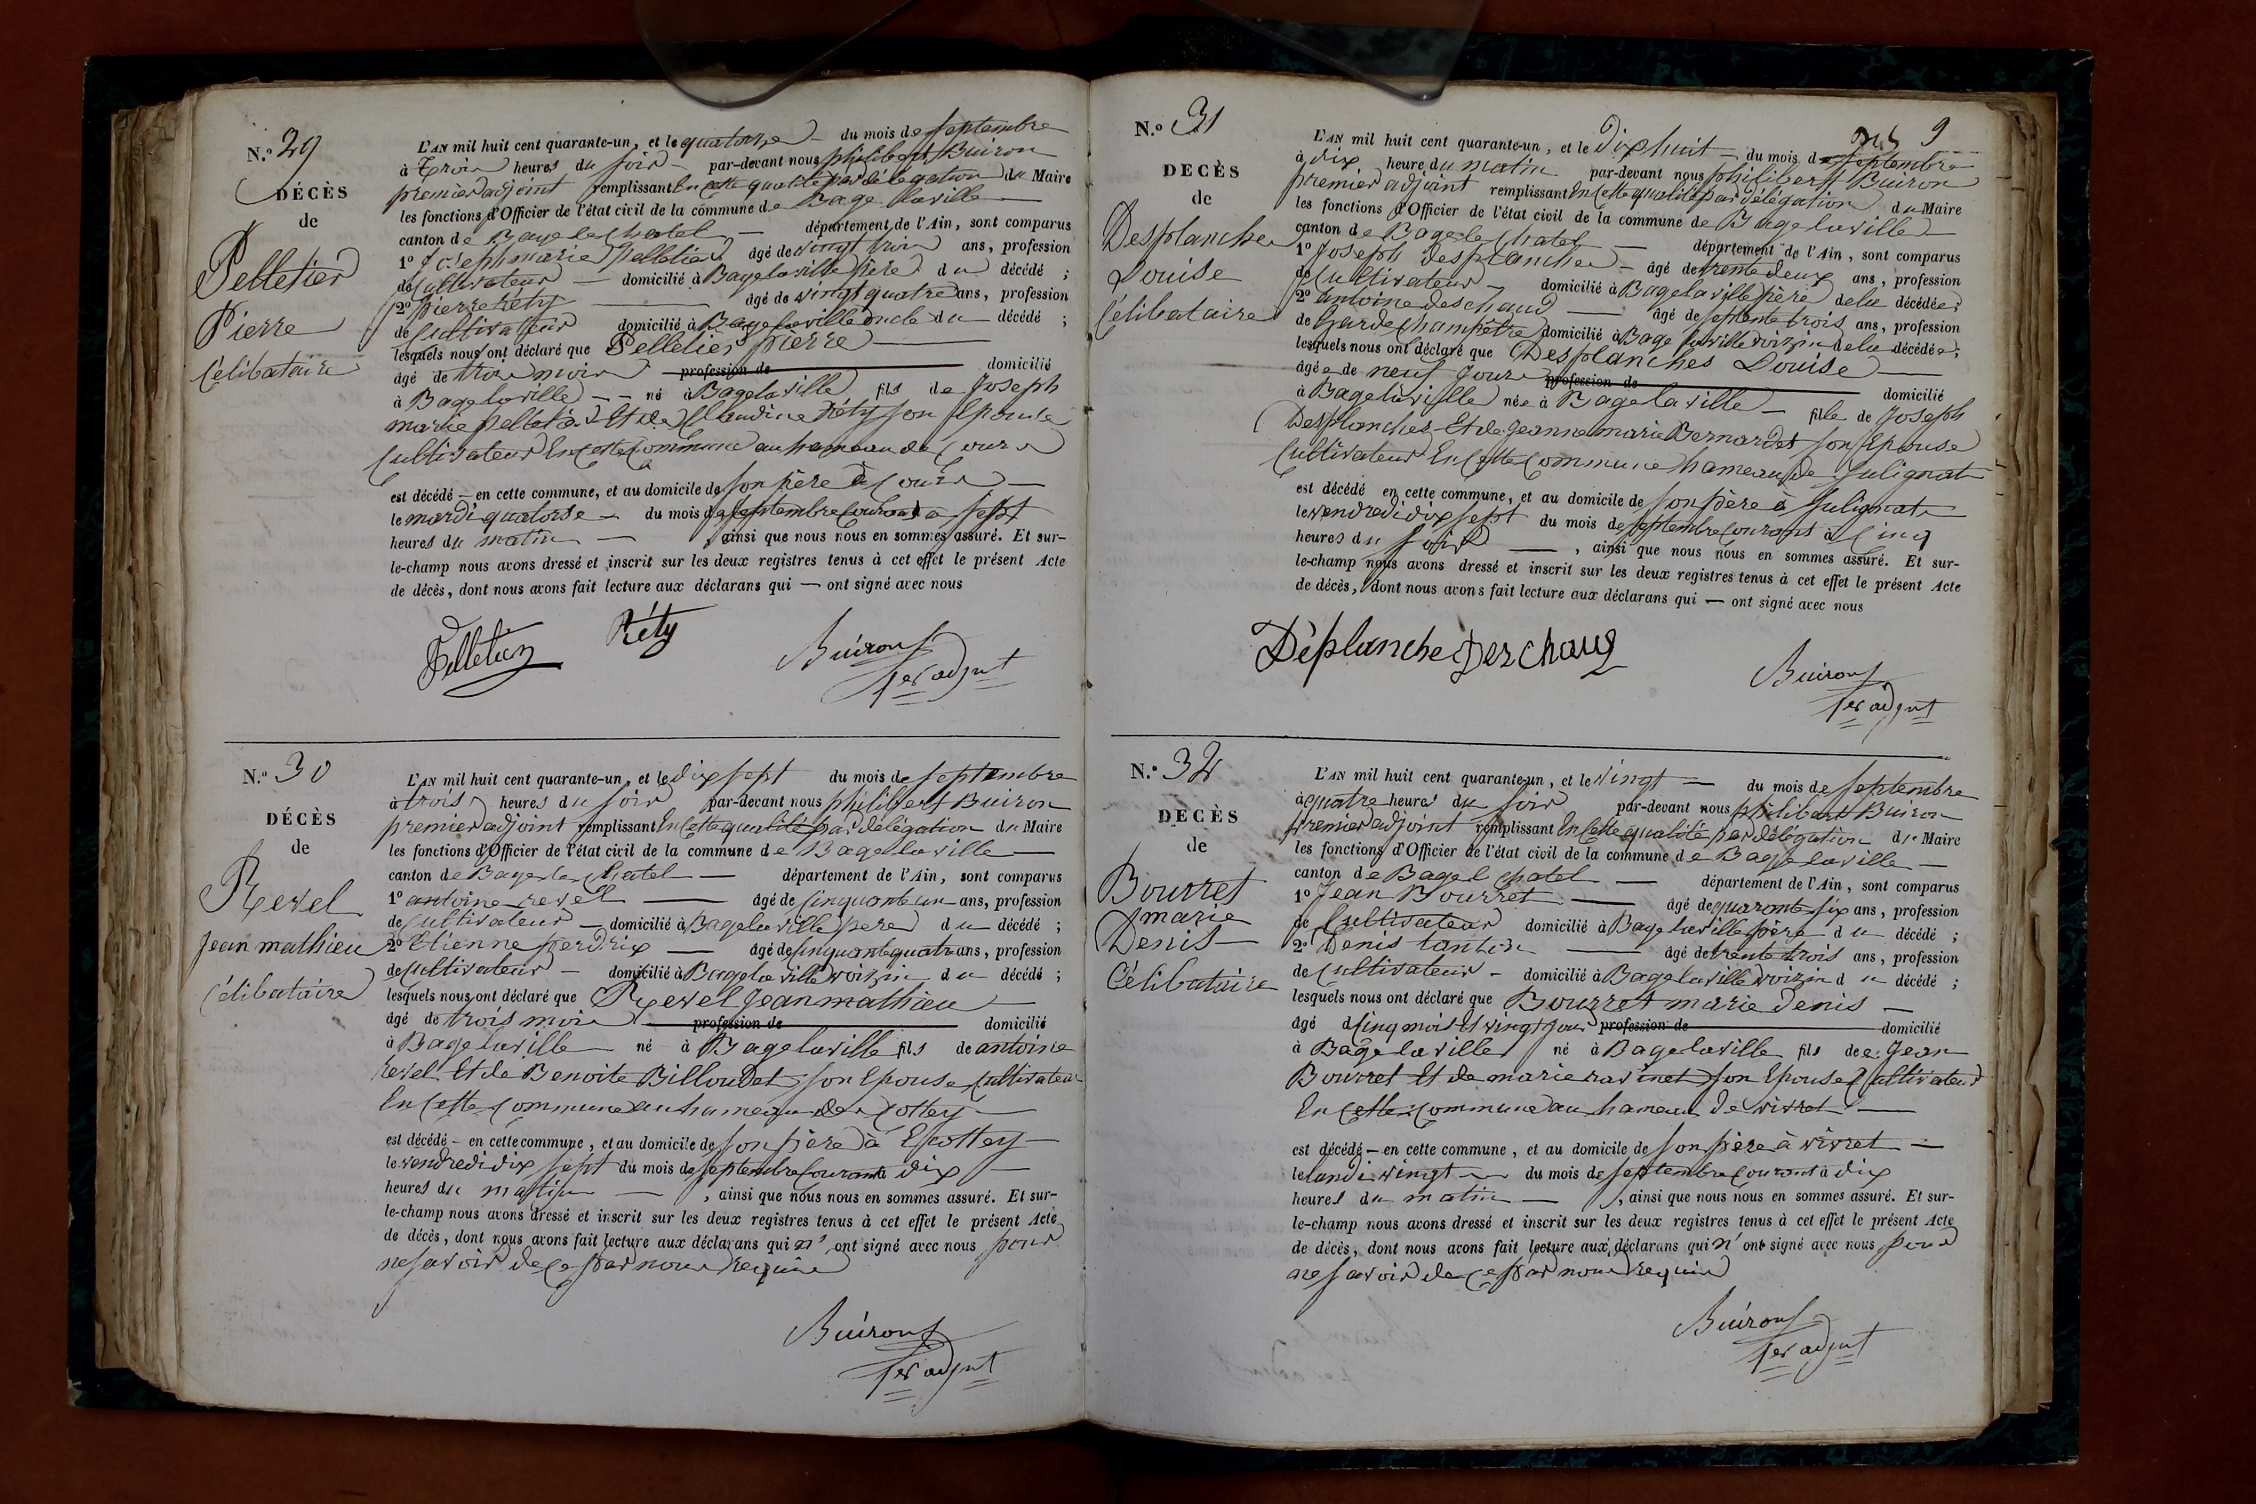 N.º 29
DÉCÈS
de
Pelletier
Pierre
Célibataire
L'AN mil huit cent quarante-un, et le quatorze du mois de septembre
à trois heures du soir par-devant nous philibert Buiron
premier adjoint remplissant En cette qualité par délégation du Maire
les fonctions d'Officier de l'état civil de la commune de Bage laville
canton de Bage le chatel département de l'Ain, sont comparus
1º Joseph marie Pelletier âgé de vingt trois ans, profession
de Cultivateur domicilié à Bage laville père du décédé ;
2º pierre réty âgé de vingt quatre ans, profession
de Cultivateur domicilié à Bage laville oncle du décédé ;
lesquels nous ont déclaré que Pelletier pierre
âgé de trois mois profession de domicilié
à Bage laville né à Bage laville fils de Joseph
marie pelletier Et de Claudine Réty son Epouse
Cultivateur En cette Commune au hameau de Cours
est décédé en cette commune, et au domicile de son père à Cours
le mardi quatorse du mois de septembre Courant à sept
heures du matin , ainsi que nous nous en sommes assuré. Et sur-
le-champ nous avons dressé et inscrit sur les deux registres tenus à cet effet le présent Acte
de décès, dont nous avons fait lecture aux déclarans qui ont signé avec nous
Pelletier Réty Buiron
1er adjnt
N.º 30
DÉCÈS
de
Revel
Jean mathieu
Célibataire
L'AN mil huit cent quarante-un, et le dix sept du mois de septembre
à trois heures du soir par-devant nous philibert Buiron
premier adjoint remplissant En cette qualité par délégation du Maire
les fonctions d'Officier de l'état civil de la commune de Bage laville
canton de Bage le chatel département de l'Ain, sont comparus
1º antoine revel âgé de Cinquante un ans, profession
de Cultivateur domicilié à Bage laville pere du décédé ;
2º Etienne perdrix âgé de Cinquante quatre ans, profession
de Cultivateur domicilié à Bage laville voizin du décédé ;
lesquels nous ont déclaré que Revel Jean mathieu
âgé de trois mois profession de domicilié
à Bage laville né à Bage laville fils de antoine
revel Et de Benoite Billoudet son Epouse Cultivateur
En Cette Commune au hameau de Cottey
est décédé en cette commune, et au domicile de son père à Ecottey
le vendredi dix sept du mois de septembre Courant à dix
heures du matin , ainsi que nous nous en sommes assuré. Et sur-
le-champ nous avons dressé et inscrit sur les deux registres tenus à cet effet le présent Acte
de décès, dont nous avons fait lecture aux déclarans qui n' ont signé avec nous pour
ne savoir de ce par nous requis
Buiron
1er adjnt
9
N.º 31
DÉCÈS
de
Desplanches
Louise
Célibataire
L'AN mil huit cent quarante-un, et le Dix huit du mois de septembre
à dix heure du matin par-devant nous philibert Buiron
premier adjoint remplissant En Cette qualité par délégation du Maire
les fonctions d'Officier de l'état civil de la commune de Bage laville
canton de Bage le Chatel département de l'Ain, sont comparus
1º Joseph desplanches âgé de trente deux ans, profession
de Cultivateur domicilié à Bage laville père de la décédée ;
2º antoine deschaud âgé de septente trois ans, profession
de Garde Champêtre domicilié à Bage laville voizin de la décédée ;
lesquels nous ont déclaré que Desplanches Louise
âgée de neuf Jours profession de domicilié
à Bage laville née à Bage laville fille de Joseph
Desplanches Et de Jeanne marie Bernardet son Epouse
Cultivateur En Cette Commune hameau de Julignat
est décédé en cette commune, et au domicile de son père à Julignat
le vendredi dix sept du mois de septembre Courant à Cinq
heures du soir , ainsi que nous nous en sommes assuré. Et sur-
le-champ nous avons dressé et inscrit sur les deux registres tenus à cet effet le présent Acte
de décès, dont nous avons fait lecture aux déclarans qui ont signé avec nous
Déplanche Deschaud
Buiron
1er adjnt
N.º 32
DÉCÈS
de
Bourret
marie
Denis
Célibataire
L'AN mil huit cent quarante-un, et le vingt du mois de septembre
à quatre heures du soir par-devant nous philibert Buiron
premier adjoint remplissant En Cette qualité par délégation du Maire
les fonctions d'Officier de l'état civil de la commune de Bage laville
canton de Bage l chatel département de l'Ain, sont comparus
1º Jean Bourret âgé de quarante six ans, profession
de Cultivateur domicilié à Bage laville père du décédé ;
2º Denis âgé de trente trois ans, profession
de Cultivateur domicilié à Bage laville voizin du décédé ;
lesquels nous ont déclaré que Bourret marie denis
âgé d Cinq mois Et vingt Jour profession de domicilié
à Bage laville né à Bage laville fils de Jean
Bourret Et de marie ravinet son Epouse Cultivateur
En Cette Commune au hameau de vivret
est décédé en cette commune, et au domicile de son père à vivret
le lundi vingt du mois de septembre Courant à dix
heures du matin , ainsi que nous nous en sommes assuré. Et sur-
le-champ nous avons dressé et inscrit sur les deux registres tenus à cet effet le présent Acte
de décès, dont nous avons fait lecture aux déclarans qui n' ont signé avec nous pour
ne savoir de ce par nous requis
Buiron
1er adjnt